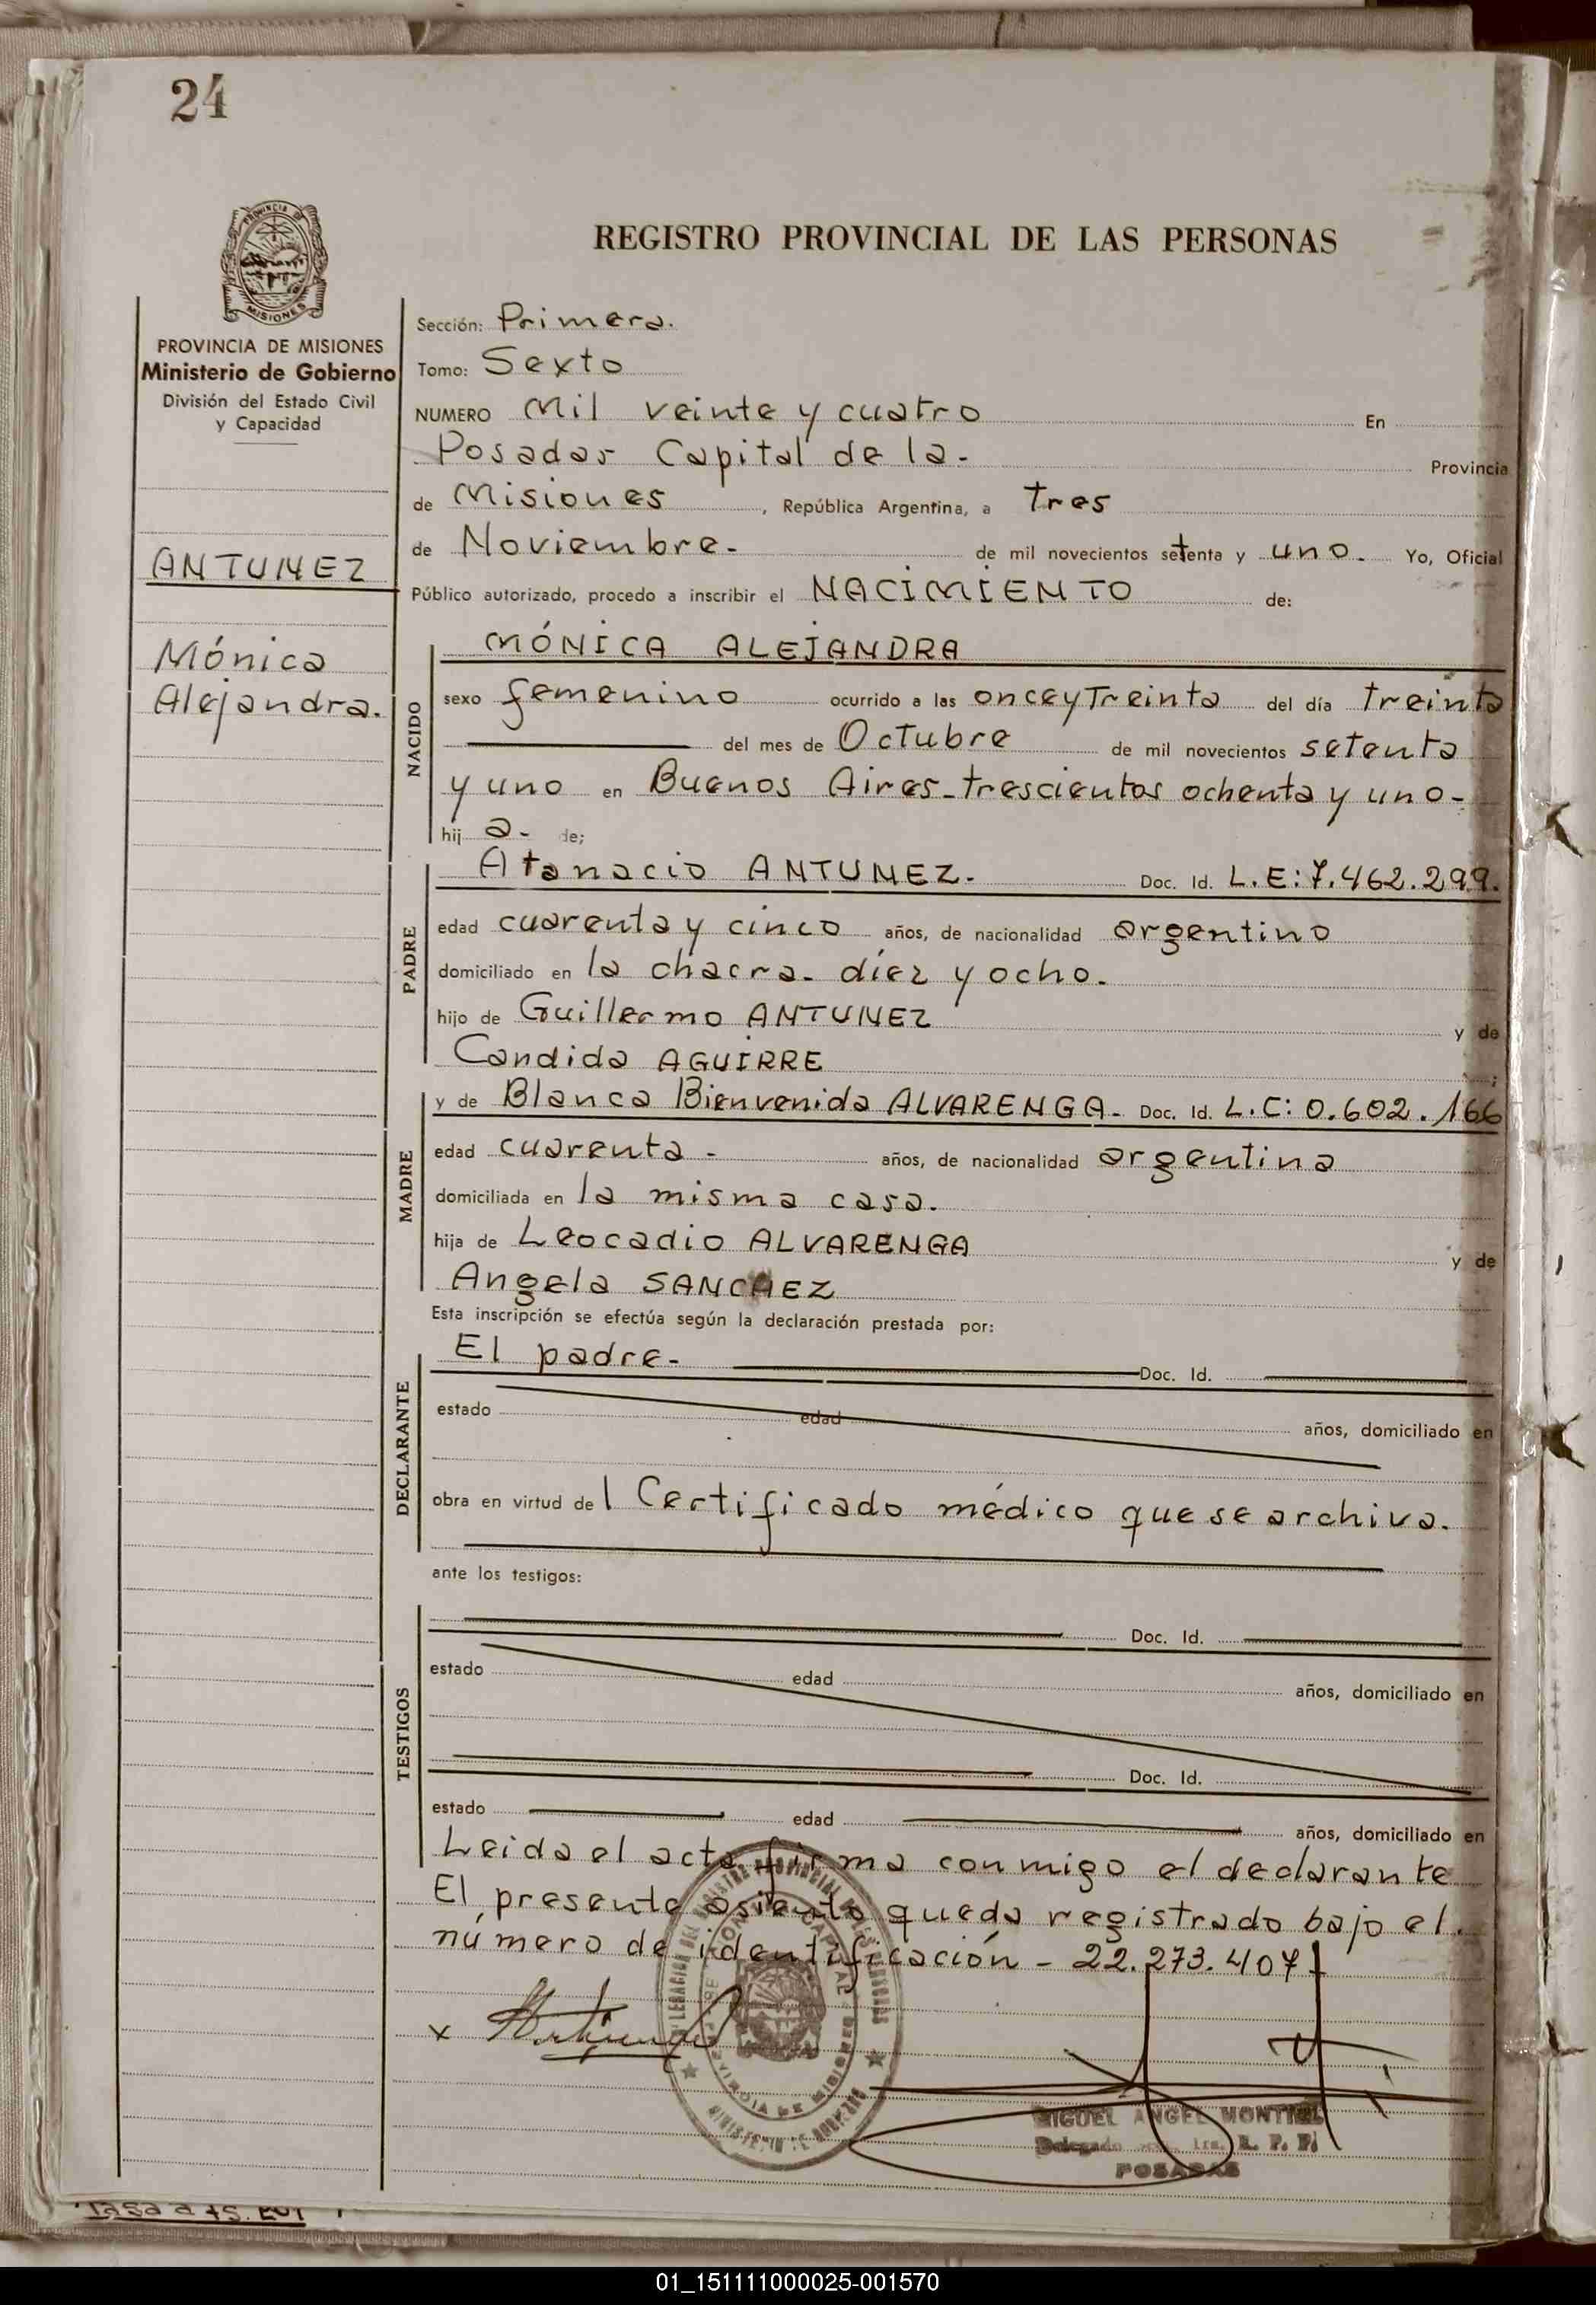 24
PROVINCIA DE MISIONES
REGISTRO PROVINCIAL DE LAS PERSONAS
PROVINCIA DE MISIONES
Ministerio de Gobierno
División del Estado Civil
y Capacidad
ANTUNEZ
Mónica
Alejandra.
Sección: Primera.
Tomo: Sexto
NUMERO Mil veinte y cuatro En
Posadas Capital de la- Provincia
de Misiones, República Argentina, a Tres
de Noviembre- de mil novecientos setenta y uno. Yo, Oficial
Público autorizado, procedo a inscribir el NACIMIENTO de:
NACIDO
MÓNICA ALEJANDRA
sexo femenino ocurrido a las once y Treinta del día treinta
del mes de Octubre de mil novecientos setenta
y uno en Buenos Aires-trescientos ochenta y uno-
hij a- de;
PADRE
Atanacio ANTUNEZ- Doc. Id. L.E: 7.462.299.
edad cuarenta y cinco años, de nacionalidad argentino
domiciliado en la chacra- diez y ocho.
hijo de Guillermo ANTUNEZ y de
Candida AGUIRRE ;
MADRE
y de Blanca Bienvenida ALVARENGA- Doc. Id. L.C: 0.602.166
edad cuarenta- años, de nacionalidad argentina
domiciliada en la misma casa.
hija de Leocadio ALVARENGA y de
Angela SANCHEZ
Esta inscripción se efectúa según la declaración prestada por:
DECLARANTE
El padre- Doc. Id.
estado edad años, domiciliado en
obra en virtud de l Certificado médico que se archiva.
ante los testigos:
TESTIGOS
Doc. Id.
estado edad años, domiciliado en
Doc. Id.
estado edad años, domiciliado en
Leida el acta firma conmigo el declarante
El presente asiento queda registrado bajo el
número de identificación - 22.273.407
x
MIGUEL ANGEL MONTIEL
Delegado 1ra. R. P. P.
POSADAS
01_151111000025-001570